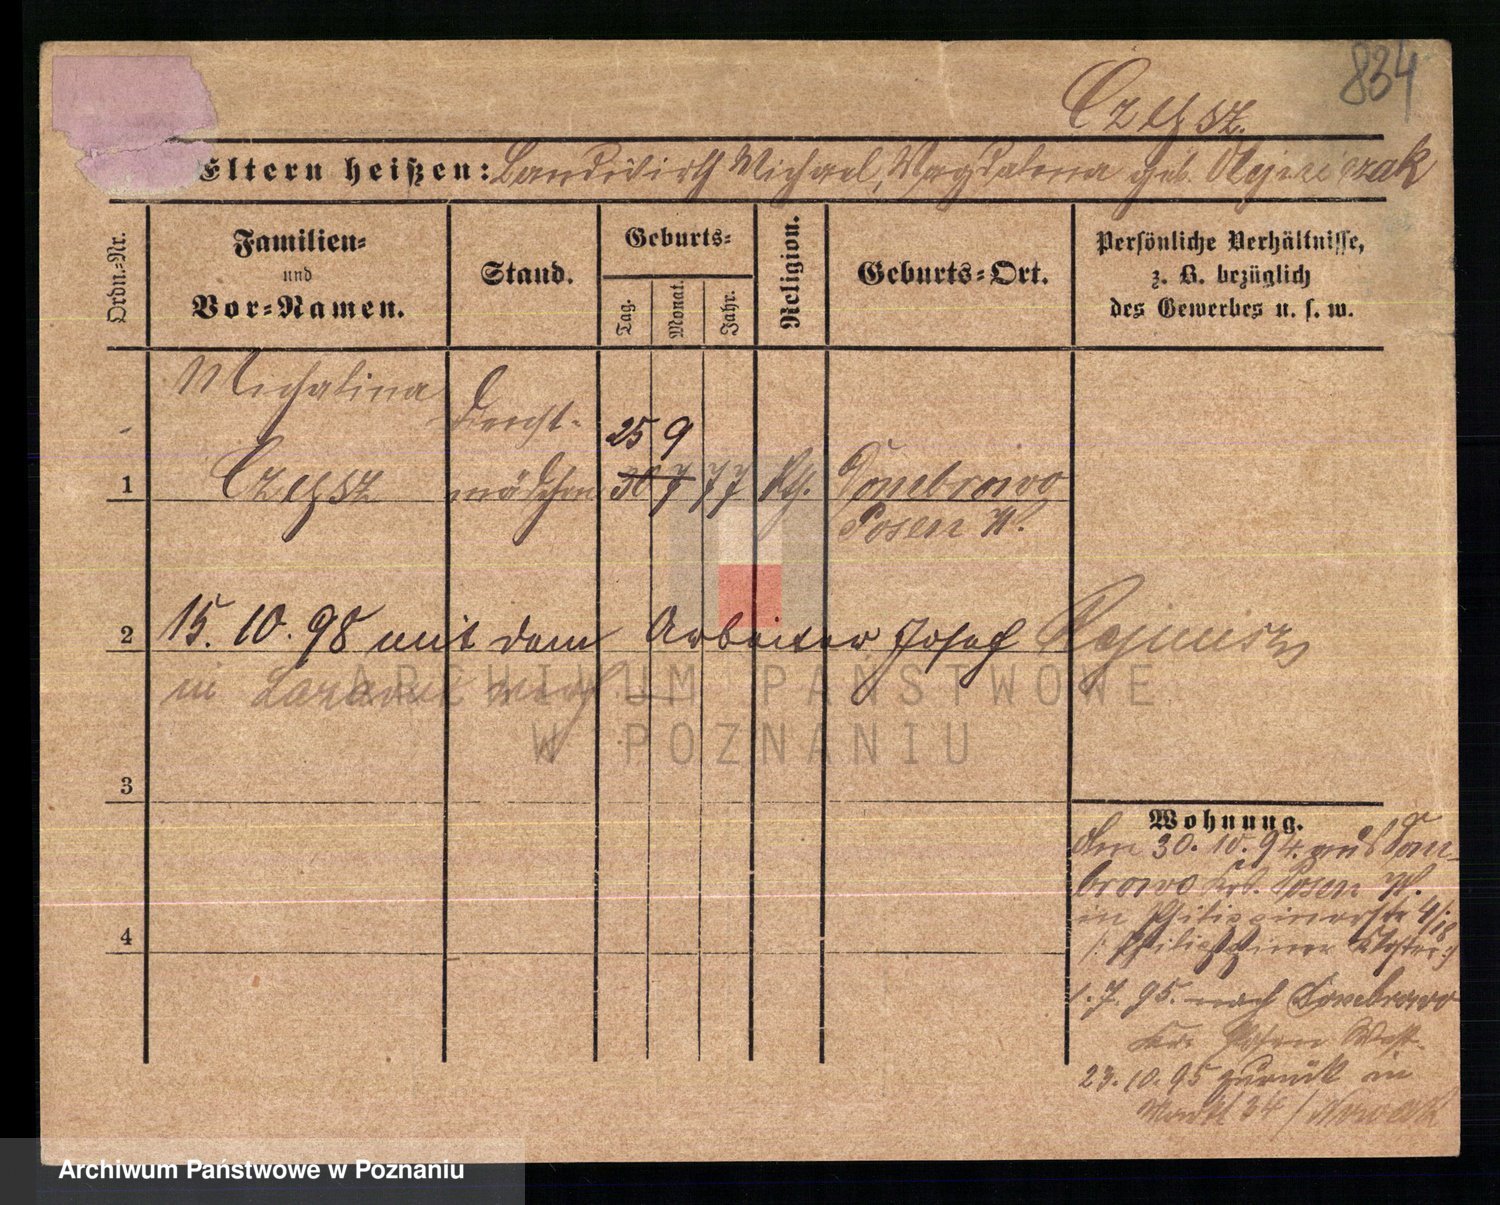 834
Czysz.
Eltern heißen: Landwirth Michael, Magdalena geb. Olejniczak
Ordn.-Nr.
Familien-
und
Vor-Namen.
Stand.
Geburts-
Tag.
Monat.
Jahr.
Religion.
Geburts-Ort.
Persönliche Verhältnisse,
z. B. bezüglich
des Gewerbes u. s. w.
Michalina
Dienst-
25 9
1 Czysz mädchen 30 7 77 kth. Dombrowo
Posen W.
2 15. 10. 98 mit dem Arbeiter Josef
in Lazarus verh.
3
Wohnung.
Am 30. 10. 94. aus Dom-
browo Krs. Posen W.
in Philippinerstr 4/18
/: Philippiner Kloster :/
4
1. 7. 95. nach Dombrowo
Krs. Posen West.
23. 10. 95 zurück in
Markt 34 / Nowak
ARCHIWUM PAŃSTWOWE
W POZNANIU
Archiwum Państwowe w Poznaniu